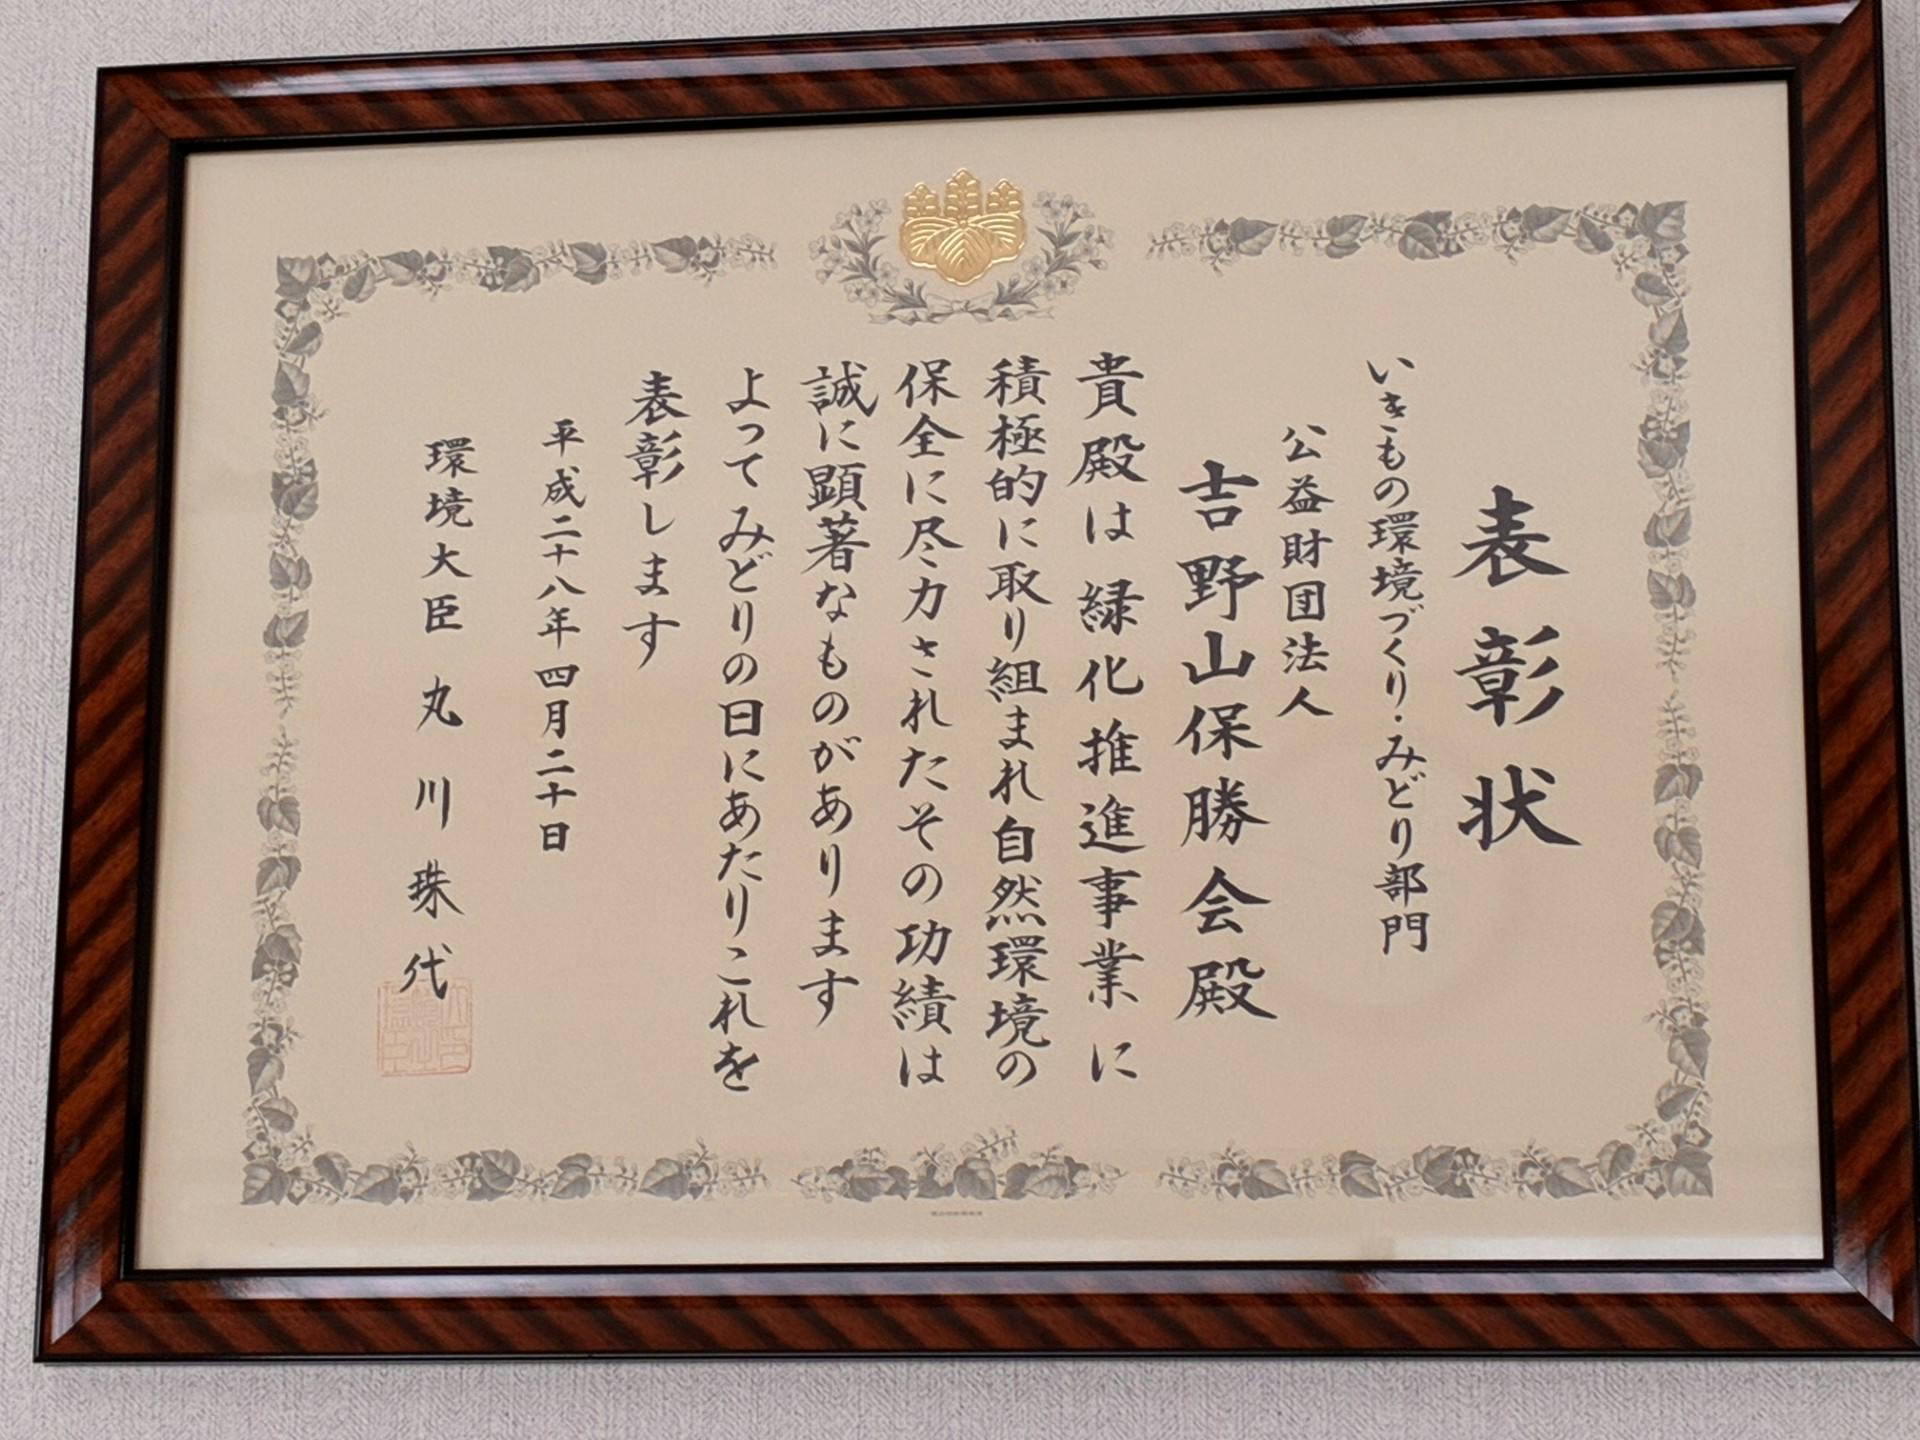 表彰状
いきもの環境づくり・みどり部門
公益財団法人
吉野山保勝会殿
貴殿は緑化推進事業に
積極的に取り組まれ自然環境の
保全に尽力されたその功績は
誠に顕著なものがあります
よってみどりの日にあたりこれを
表彰します
平成二十八年四月二十日
環境大臣 丸川珠代